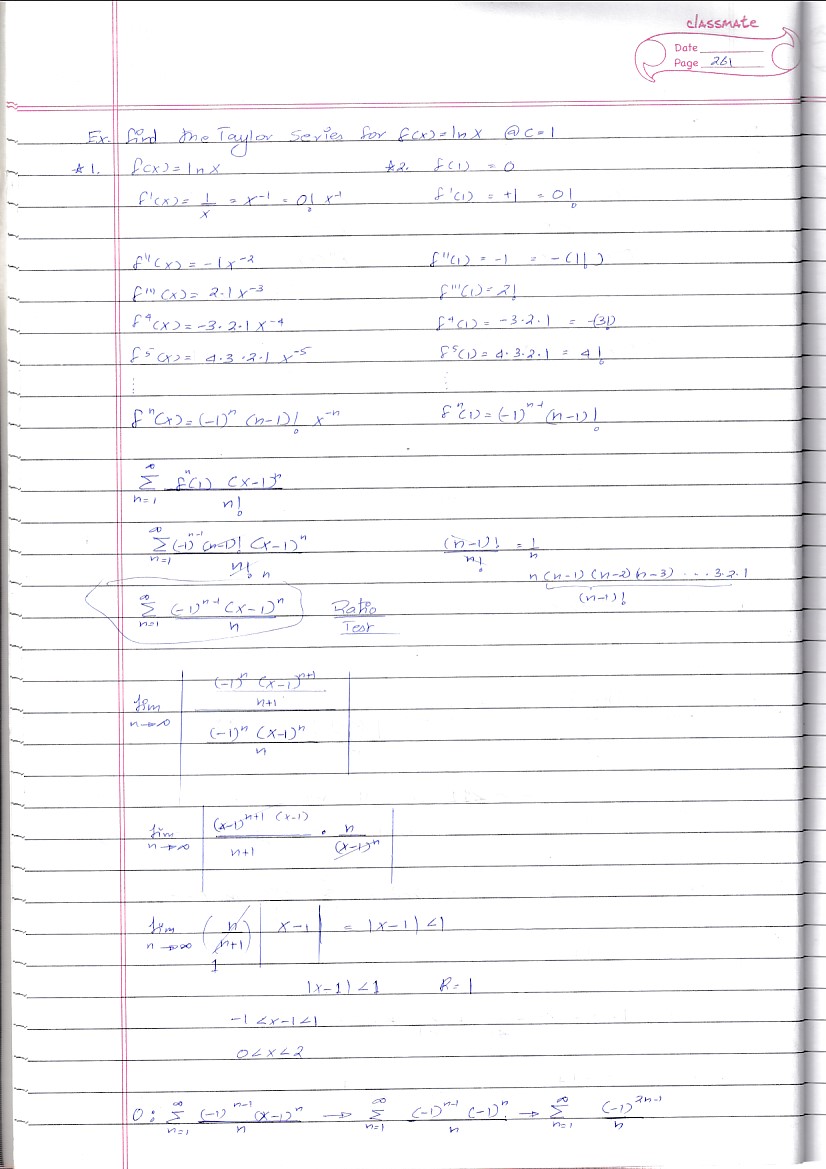 classmate
Date
Page 261
Ex. find the Taylor Series for f(x)=lnx @c=1
*1. f(x)=lnx *2. f(1) = 0
f'(x)= 1/x = x⁻¹ = 0! x⁻¹ f'(1) = +1 = 0!
f''(x) = -1x⁻² f''(1) = -1 = -(1!)
f'''(x) = 2·1x⁻³ f'''(1)=2!
f⁴(x) = -3·2·1x⁻⁴ f⁴(1) = -3·2·1 = -(3!)
f⁵(x)= 4·3·2·1 x⁻⁵ f⁵(1)= 4·3·2·1 = 4!
⋮ ⋮
fⁿ(x)=(-1)ⁿ (n-1)! x⁻ⁿ fⁿ(1)=(-1)ⁿ⁻¹(n-1)!
∞Σn=1 fⁿ(1) (x-1)ⁿ / n!
∞Σn=1 (-1)ⁿ⁻¹(n-1)! (x-1)ⁿ / n! n (n-1)! / n! = 1/n
n(n-1)(n-2)(n-3) ... 3·2·1
(n-1)!
∞Σn=1 (-1)ⁿ⁻¹(x-1)ⁿ / n Ratio Test
lim n→∞ | (-1)ⁿ (x-1)ⁿ⁺¹ / n+1 / (-1)ⁿ (x-1)ⁿ / n |
lim n→∞ | (x-1)ⁿ⁺¹ (x-1) / n+1 · n / (x-1)ⁿ |
lim n→∞ (n / n+1) | x-1 | = |x-1| <1
1
|x-1|<1 R=1
-1<x-1<1
0<x<2
0: ∞Σn=1 (-1)ⁿ⁻¹(x-1)ⁿ / n → ∞Σn=1 (-1)ⁿ⁻¹ (-1)ⁿ / n → ∞Σn=1 (-1)²ⁿ⁻¹ / n